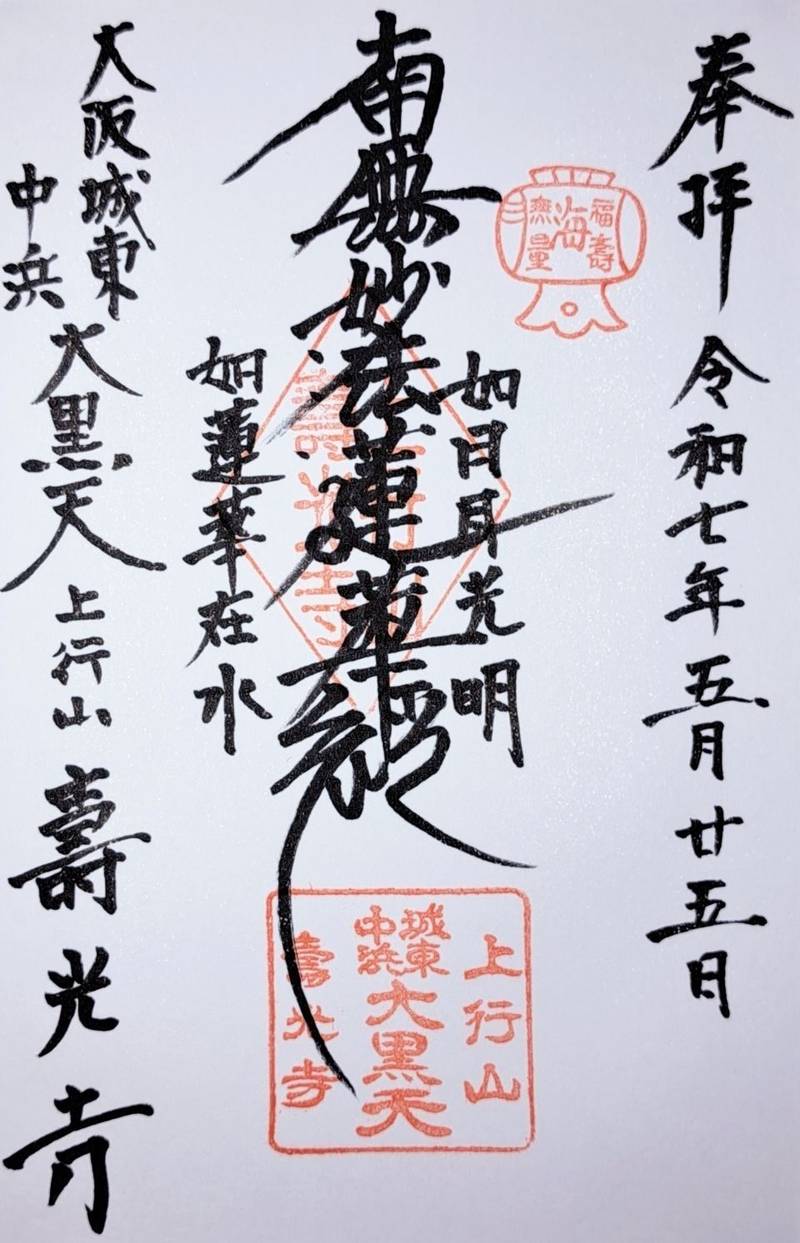 奉拝 令和七年五月廿五日
福壽
海
無量
如日月光明
南無妙法蓮華經
壽光寺
如蓮華在水
大阪城東
中浜
大黒天 上行山 壽光寺
上行山
城東
中浜
大黒天
壽光寺